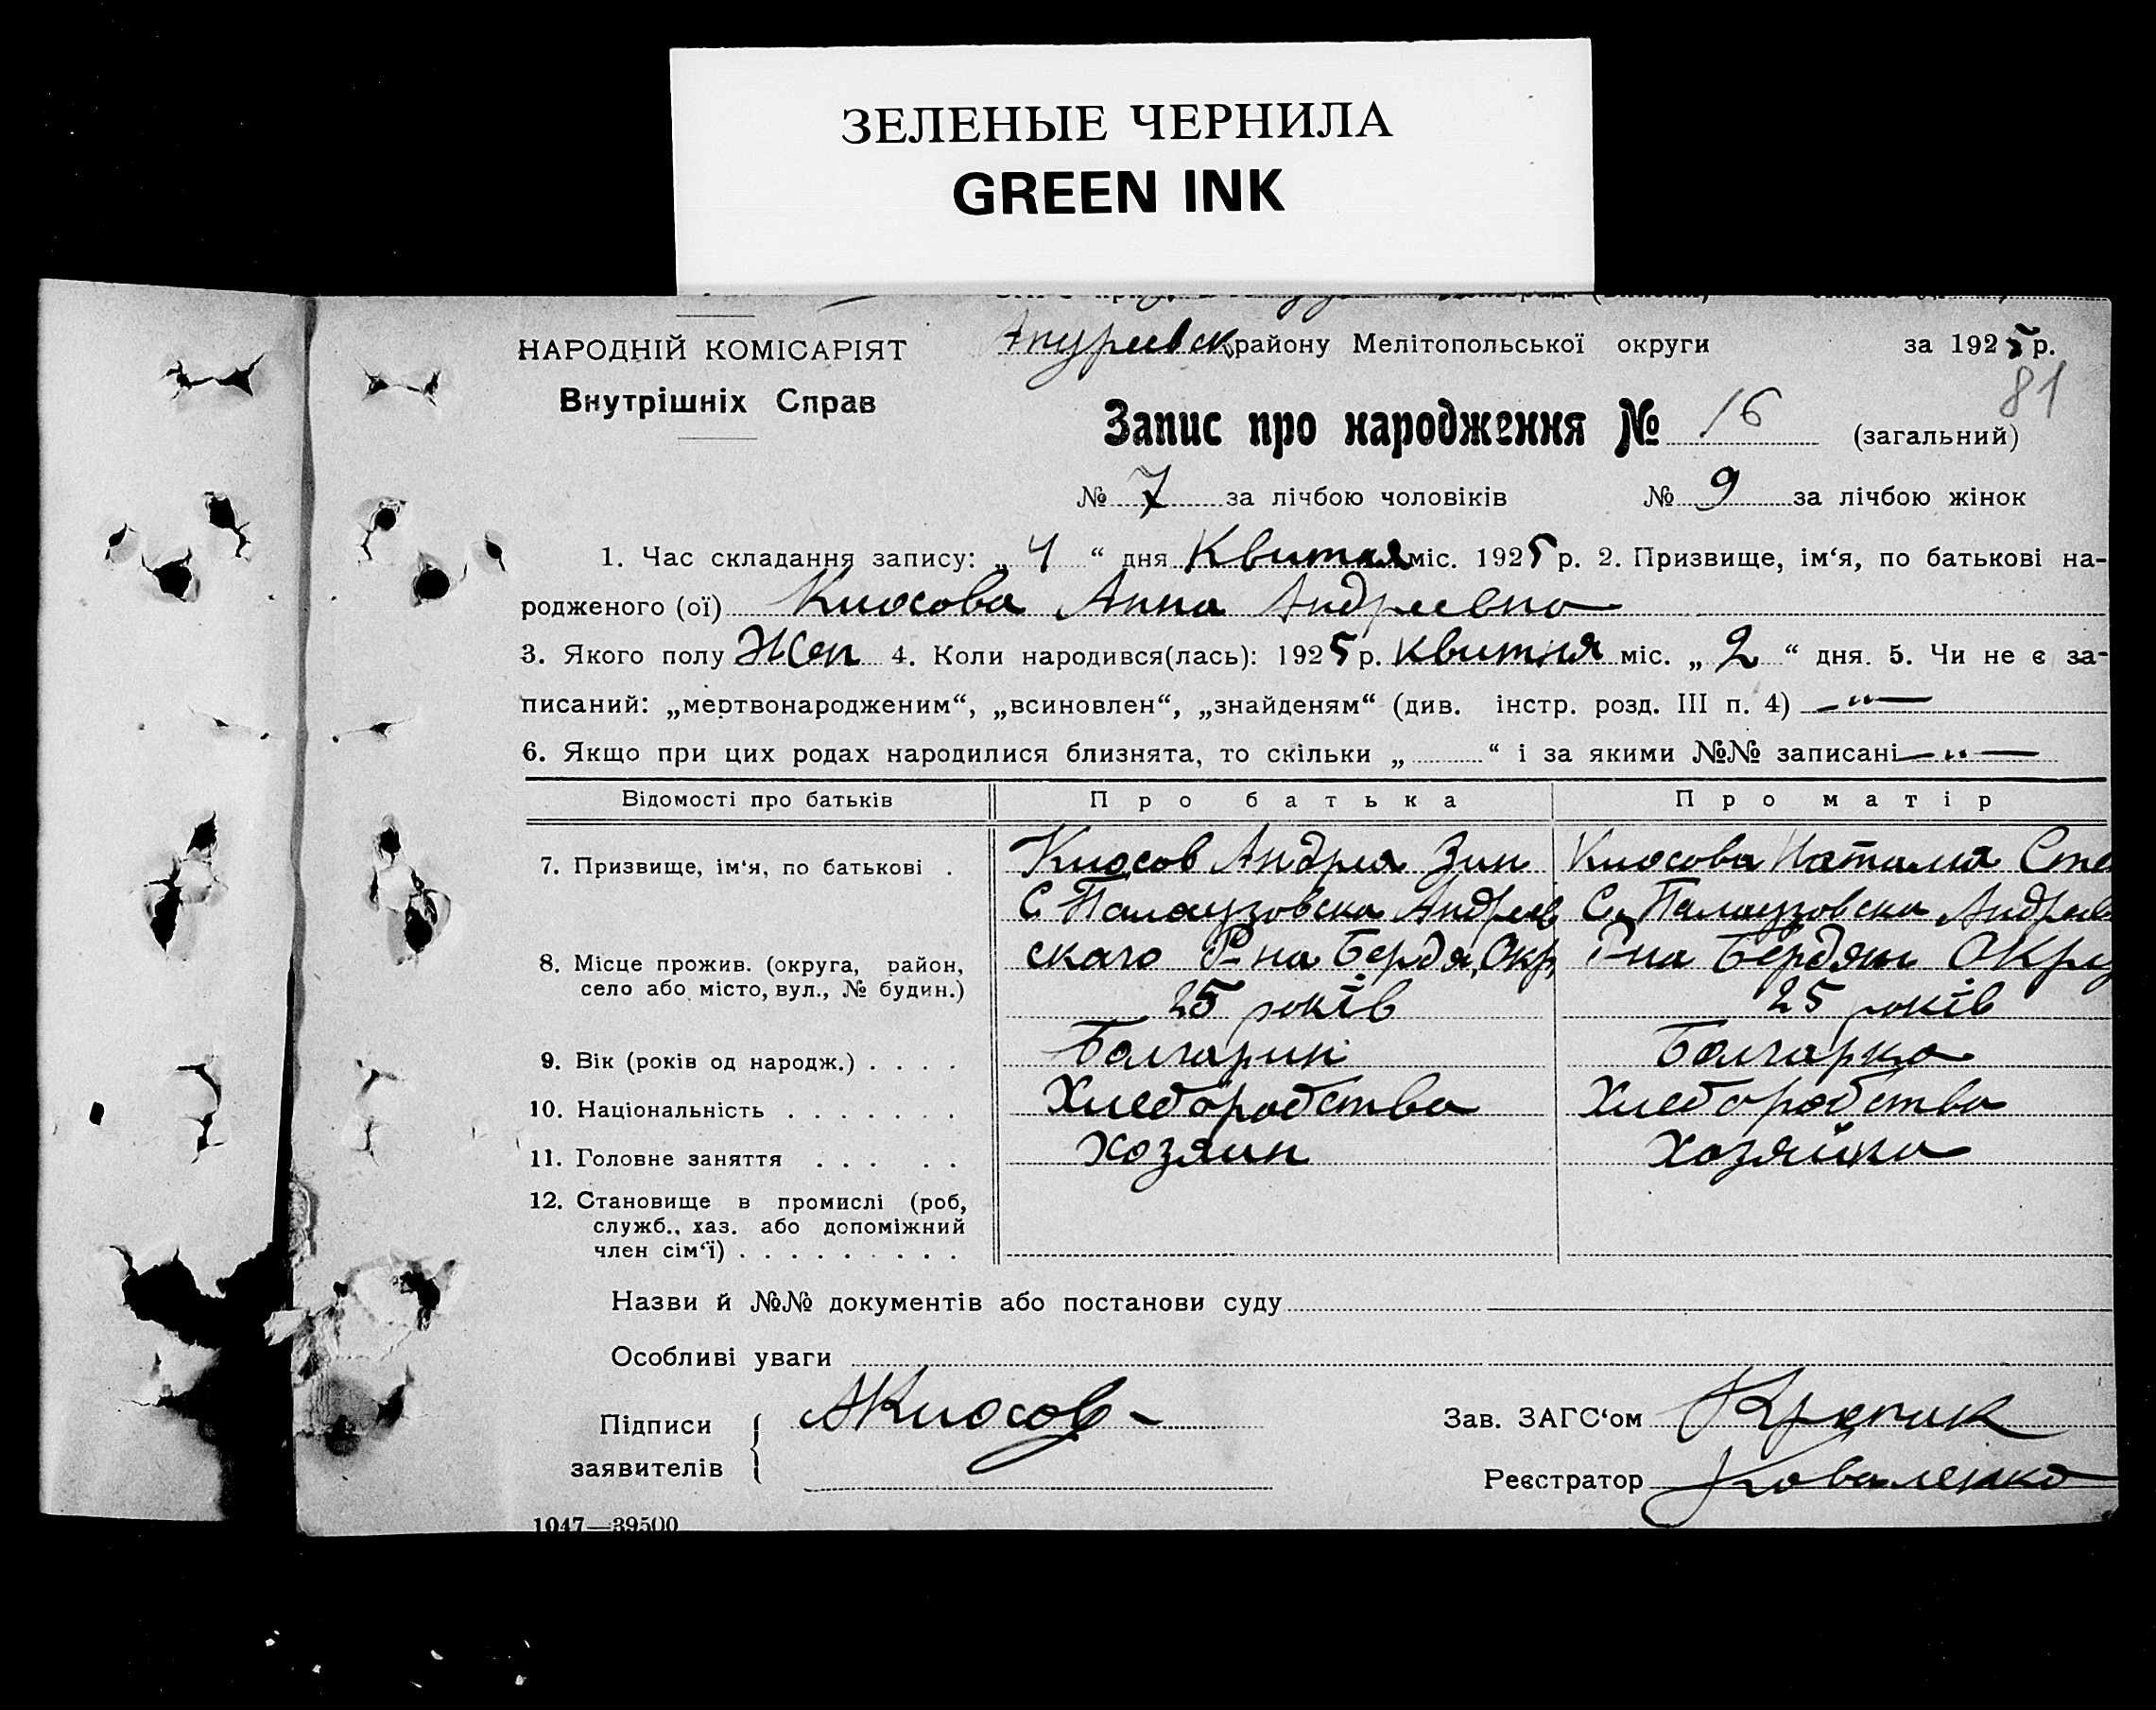 ЗЕЛЕНЫЕ ЧЕРНИЛА
GREEN INK
НАРОДНІЙ КОМІСАРІЯТ
Внутрішніх Справ
району Мелітопольської округи за 1925 р.
81
Запис про народження № 16 (загальний)
№ 7 за лічбою чоловіків № 9 за лічбою жінок
1. Час складання запису: „ 4 “ дня Квитня міс. 1925 р. 2. Призвище, ім‘я, по батькові на-
родженого (ої) Киосова Анна Андреевна
3. Якого полу Жен 4. Коли народився(лась): 1925 р. квитня міс. „ 2 “ дня. 5. Чи не є за-
писаний: „мертвонародженим“, „всиновлен“, „знайденям“ (див. інстр. розд. III п. 4) —"—
6. Якщо при цих родах народилися близнята, то скільки „ “ і за якими №№ записані —"—
Відомості про батьків Про батька Про матір
7. Призвище, ім‘я, по батькові . Киосов Андрея Зин Киосова Наталия Сте
С Палаузовска Андреев С. Палаузовска Андреев
8. Місце прожив. (округа, район, скаго Р-на Бердя, Окр, Р-на Бердян Окру
село або місто, вул., № будин.)
25 років 25 років
9. Вік (років од народж.) . . . . Болгарин Болгарка
10. Національність . . . . . . . Хлеборобства Хлеборобства
11. Головне заняття . . . . . Хозяин Хозяйка
12. Становище в промислі (роб,
служб., хаз. або допоміжний
член сім‘ї) . . . . . . . . .
Назви й №№ документів або постанови суду
Особливі уваги
Підписи АКиосов Зав. ЗАГС‘ом
заявителів Реєстратор Коваленко
1047—39500